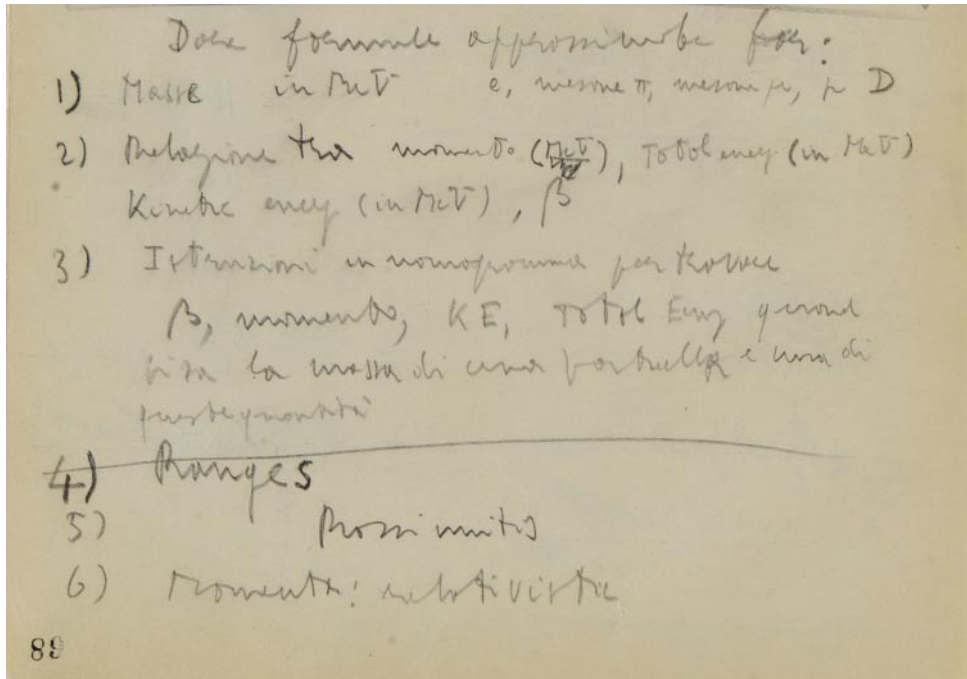 Dare formule approssimate per:
1) Masse in MeV e, mesone π, mesone μ, p D
2) Relazione tra momento (MeV), Total energ (in MeV)
Kinetic energ (in MeV), β
3) Istruzioni in nomogramma per trovare
β, momento, KE, Total Energ quand
si sa la massa di una particella e una di
queste quantità
4) Ranges
5) Prossimità
6) Momenta: relativistic
89